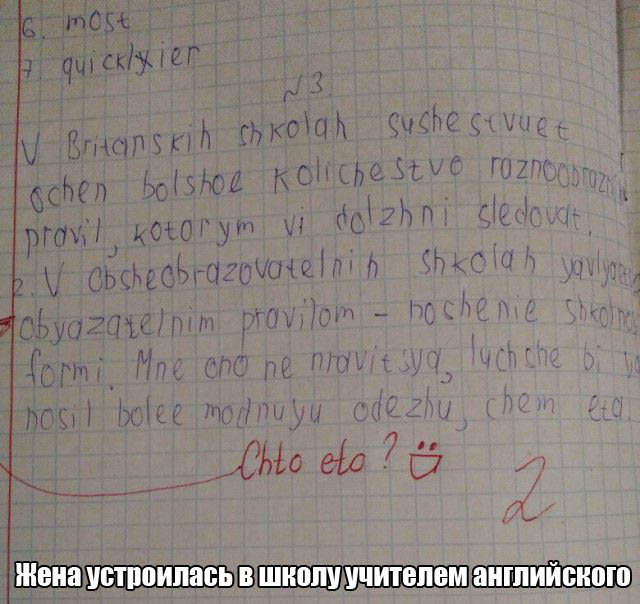 6. most
7 quicklyier
N 3.
V Britanskih shkolah sushestvuet
ochen bolshoe kolichestvo
pravil, kotorym vi dolzhni sledovat.
2. V obsheobrazovatelnih shkolah
obyazatelnim pravilom - noshenie
formi. Mne ono ne nravitsya, luchshe bi ya
nosil bolee modnuyu odezhu, chem eta.
Chto eto?
2
Жена устроилась в школу учителем английского